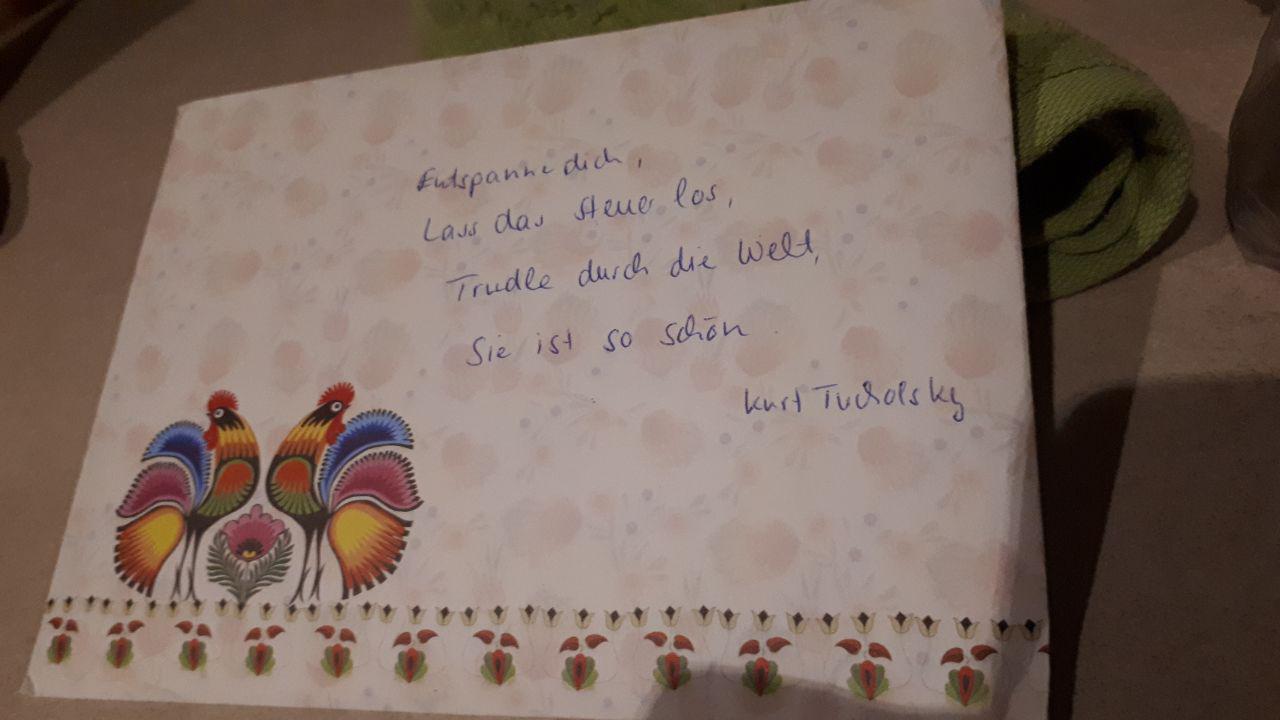 Entspanne dich,
Lass das Steuer los,
Trudle durch die Welt,
Sie ist so schön.
Kurt Tucholsky